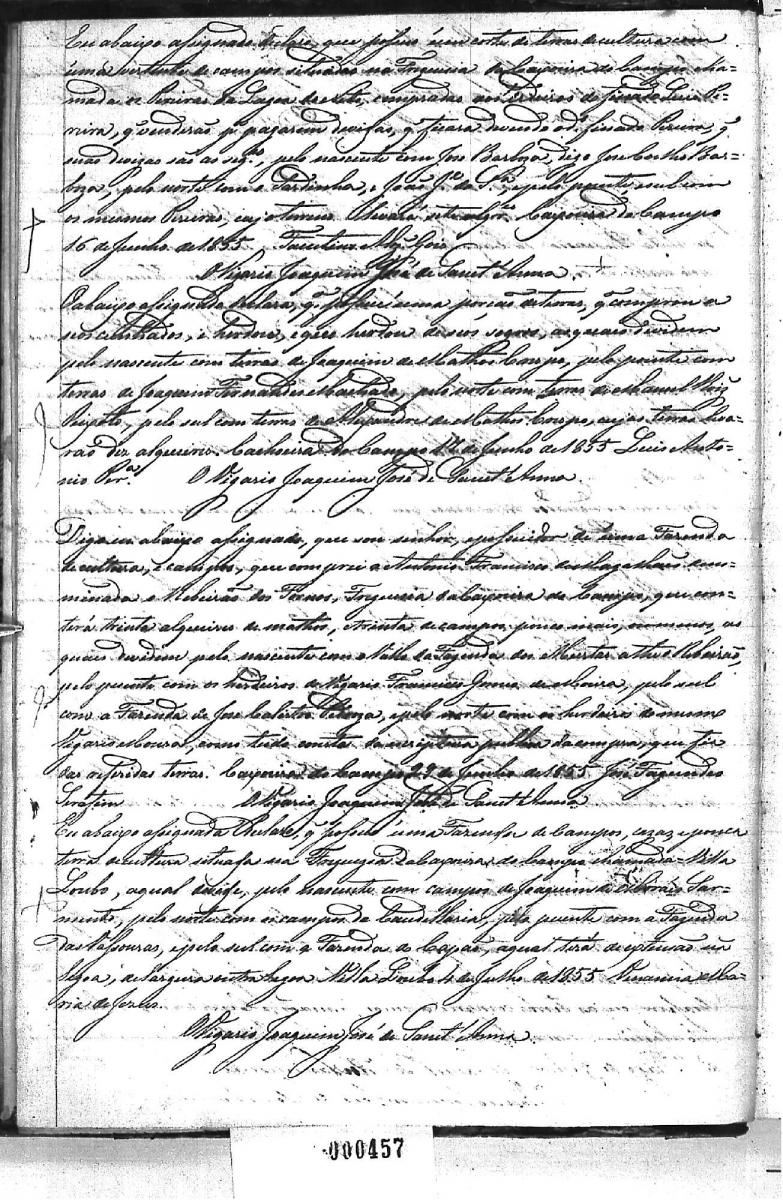 Eu abaixo assignado declaro, que possuo uma corte de terras de cultura com
uma vertente de campos situadas na Freguesia da Caxoeira do Campo cha-
mada os Pereiras da Lagoa compradas aos Erdeiros do finado Luis Pe-
reira, q̃ venderão pª pagarem q̃ ficara devendo o dº finado Pereira, q̃
suas devizas são as segᵉˢ, pelo nascente com José Barboza, digo José Bar-
boza, pelo norte com o e João Jᵉ da Sª, e pelo poente e sul com
os mesmos Pereiras, cujo terreno levará sete alqrᵉˢ Caxoeira do Campo
16 de Junho de 1855
O Vigario Joaquim José de Sanct'Anna.
O abaixo assignado declara, q̃ possue uma porção de terras, q̃ comprou a
seos cunhados, e herdou, e que herdou de seos sogros, as quaes dividem
pelo nascente com terras de Joaquim de Mattos Crespo, pelo poente com
terras de Joaquim Fernandes Machado, pelo norte com terras de Manuel
Peixoto, pelo sul com terras de Alexandre de Mattos Crespo, cujas terras leva-
rão dez alqueires. Cachoeira do Campo 17 de Junho de 1855 Luis Anto-
nio Perª O Vigario Joaquim José de Sanct'Anna.
Digo eu abaixo assignado, que sou senhor, e possuidor de uma Fazenda
de cultura, e campos, que comprei a Antonio Francisco de Magalhães deno-
minada o Ribeirão dos Freguesia da Caxoeira do Campo, que con-
terá trinta alqueires de mattos, e trinta de campos, pouco mais, ou menos, as
quaes dividem pelo nascente com o Vallo da Fazenda dos athe o Ribeirão,
pelo poente com os herdeiros do Vigario Francisco de Moura, pelo sul
com a Fazenda de José Barboza, e pelo norte com os herdeiros do mesmo
Vigario Moura, como tudo consta da escriptura publica da compra, que fiz
das referidas terras. Caxoeira do Campo 29 de Junho de 1855 José Fagundes
Serafim O Vigario Joaquim José de Sanct'Anna
Eu abaixo assignada declaro, q̃ possuo uma Fazenda de Campos, cazas e pouca
terra de cultura situada na Freguezia da Caxoeira do Campo chamada Villa
Loubo, a qual divide, pelo nascente com campos de Joaquim de Moraes Sar-
mento, pelo norte com os campos da Cavallaria, pelo poente com a Fazenda
das Vassouras, e pelo sul com a Fazenda do Capão, a qual terá de extensão uã
legoa, de largura outra legoa Villa Loubo 4 de Julho de 1855 Ma-
ria de Jezus.
O Vigario Joaquim José de Sanct'Anna.
000457